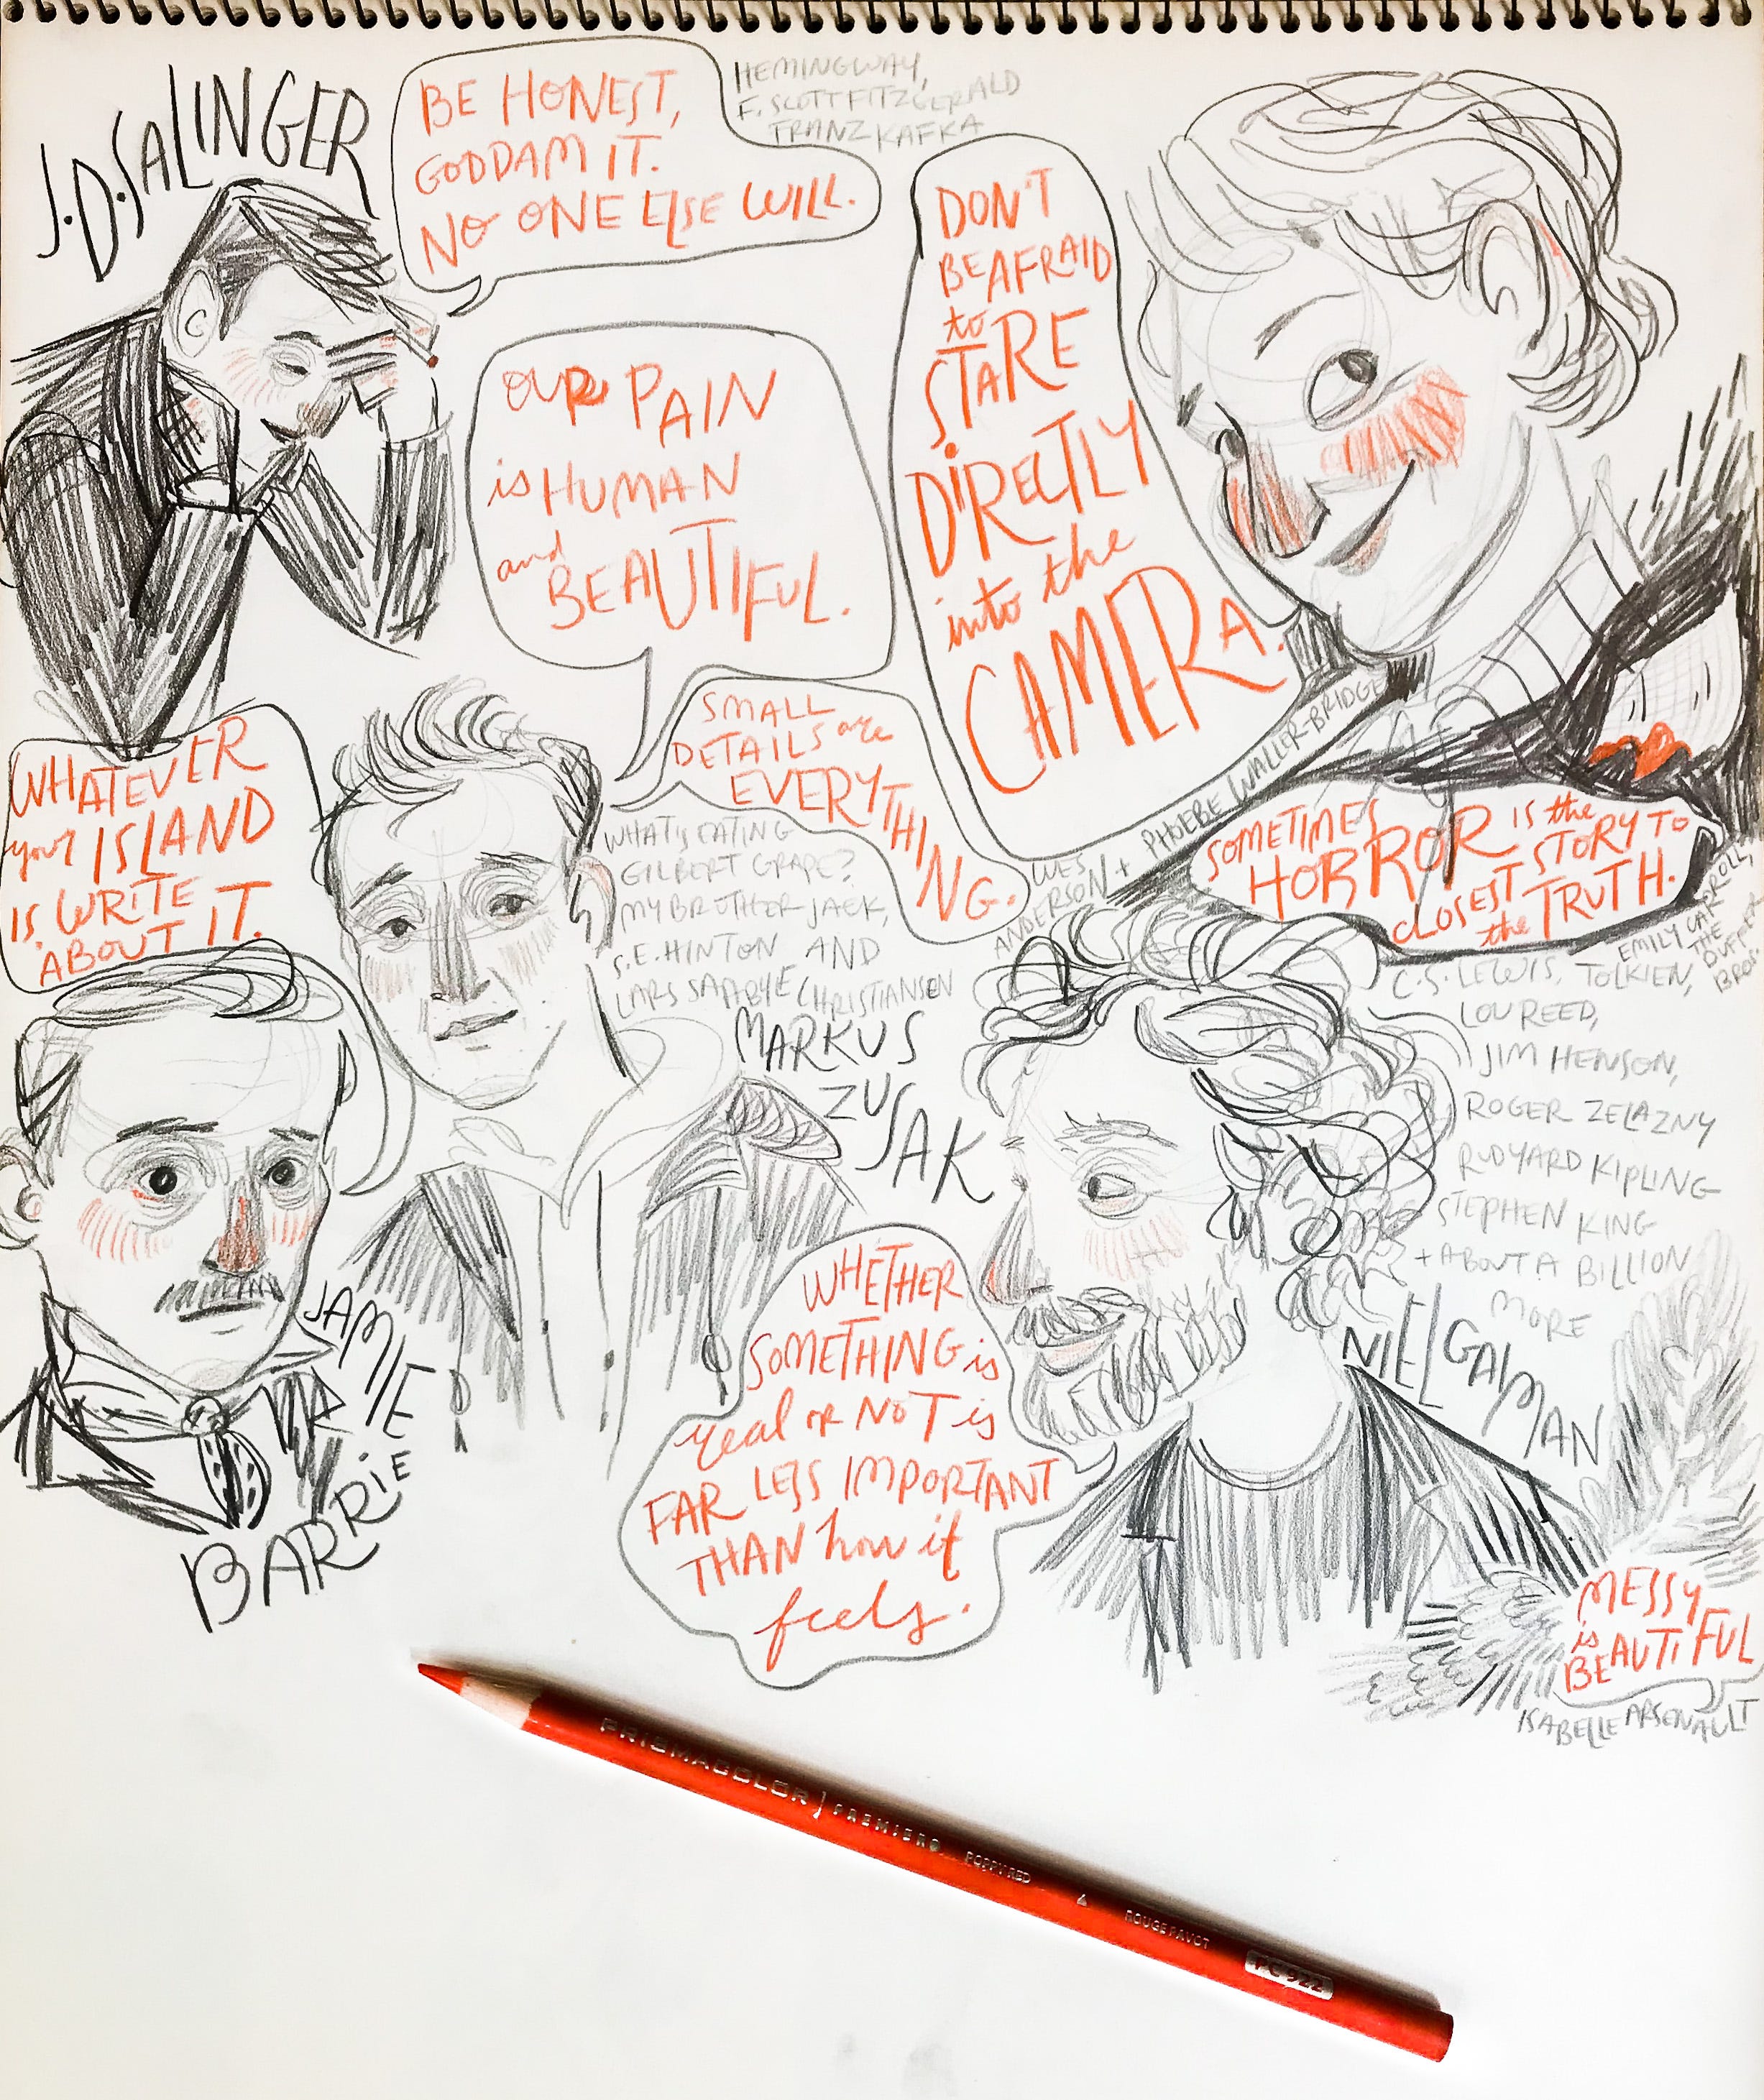 J.D. SALINGER
BE HONEST,
GODDAM IT.
NO ONE ELSE WILL.
HEMINGWAY,
F. SCOTT FITZGERALD
FRANZ KAFKA
OUR PAIN
is HUMAN
and
BEAUTIFUL.
SMALL
DETAILS are
EVERYTHING.
WHAT'S EATING
GILBERT GRAPE?
MY BROTHER JACK,
S.E. HINTON AND
LARS SAABYE CHRISTIANSEN
MARKUS
ZUSAK
DON'T
BE AFRAID
to
STARE
DIRECTLY
into the
CAMERA.
WES
ANDERSON + PHOEBE WALLER-BRIDGE
SOMETIMES
HORROR IS the
CLOSEST STORY TO
the TRUTH.
EMILY CARROLL,
THE
DUFFER
BROS.
WHATEVER
your ISLAND
IS, WRITE
ABOUT IT.
JAMIE
BARRIE
C.S. LEWIS, TOLKIEN,
LOU REED,
JIM HENSON,
ROGER ZELAZNY
RUDYARD KIPLING
STEPHEN KING
+ ABOUT A BILLION
MORE
NIEL GAIMAN
WHETHER
SOMETHING is
real or NOT is
FAR LESS IMPORTANT
THAN how it
feels.
MESSY
is
BEAUTIFUL
ISABELLE ARSENAULT
PRISMACOLOR PREMIER POPPY RED ROUGE PAVOT PC 922